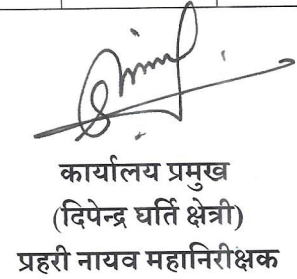 कार्यालय प्रमुख
(दिपेन्द्र घर्ति क्षेत्री)
प्रहरी नायव महानिरीक्षक